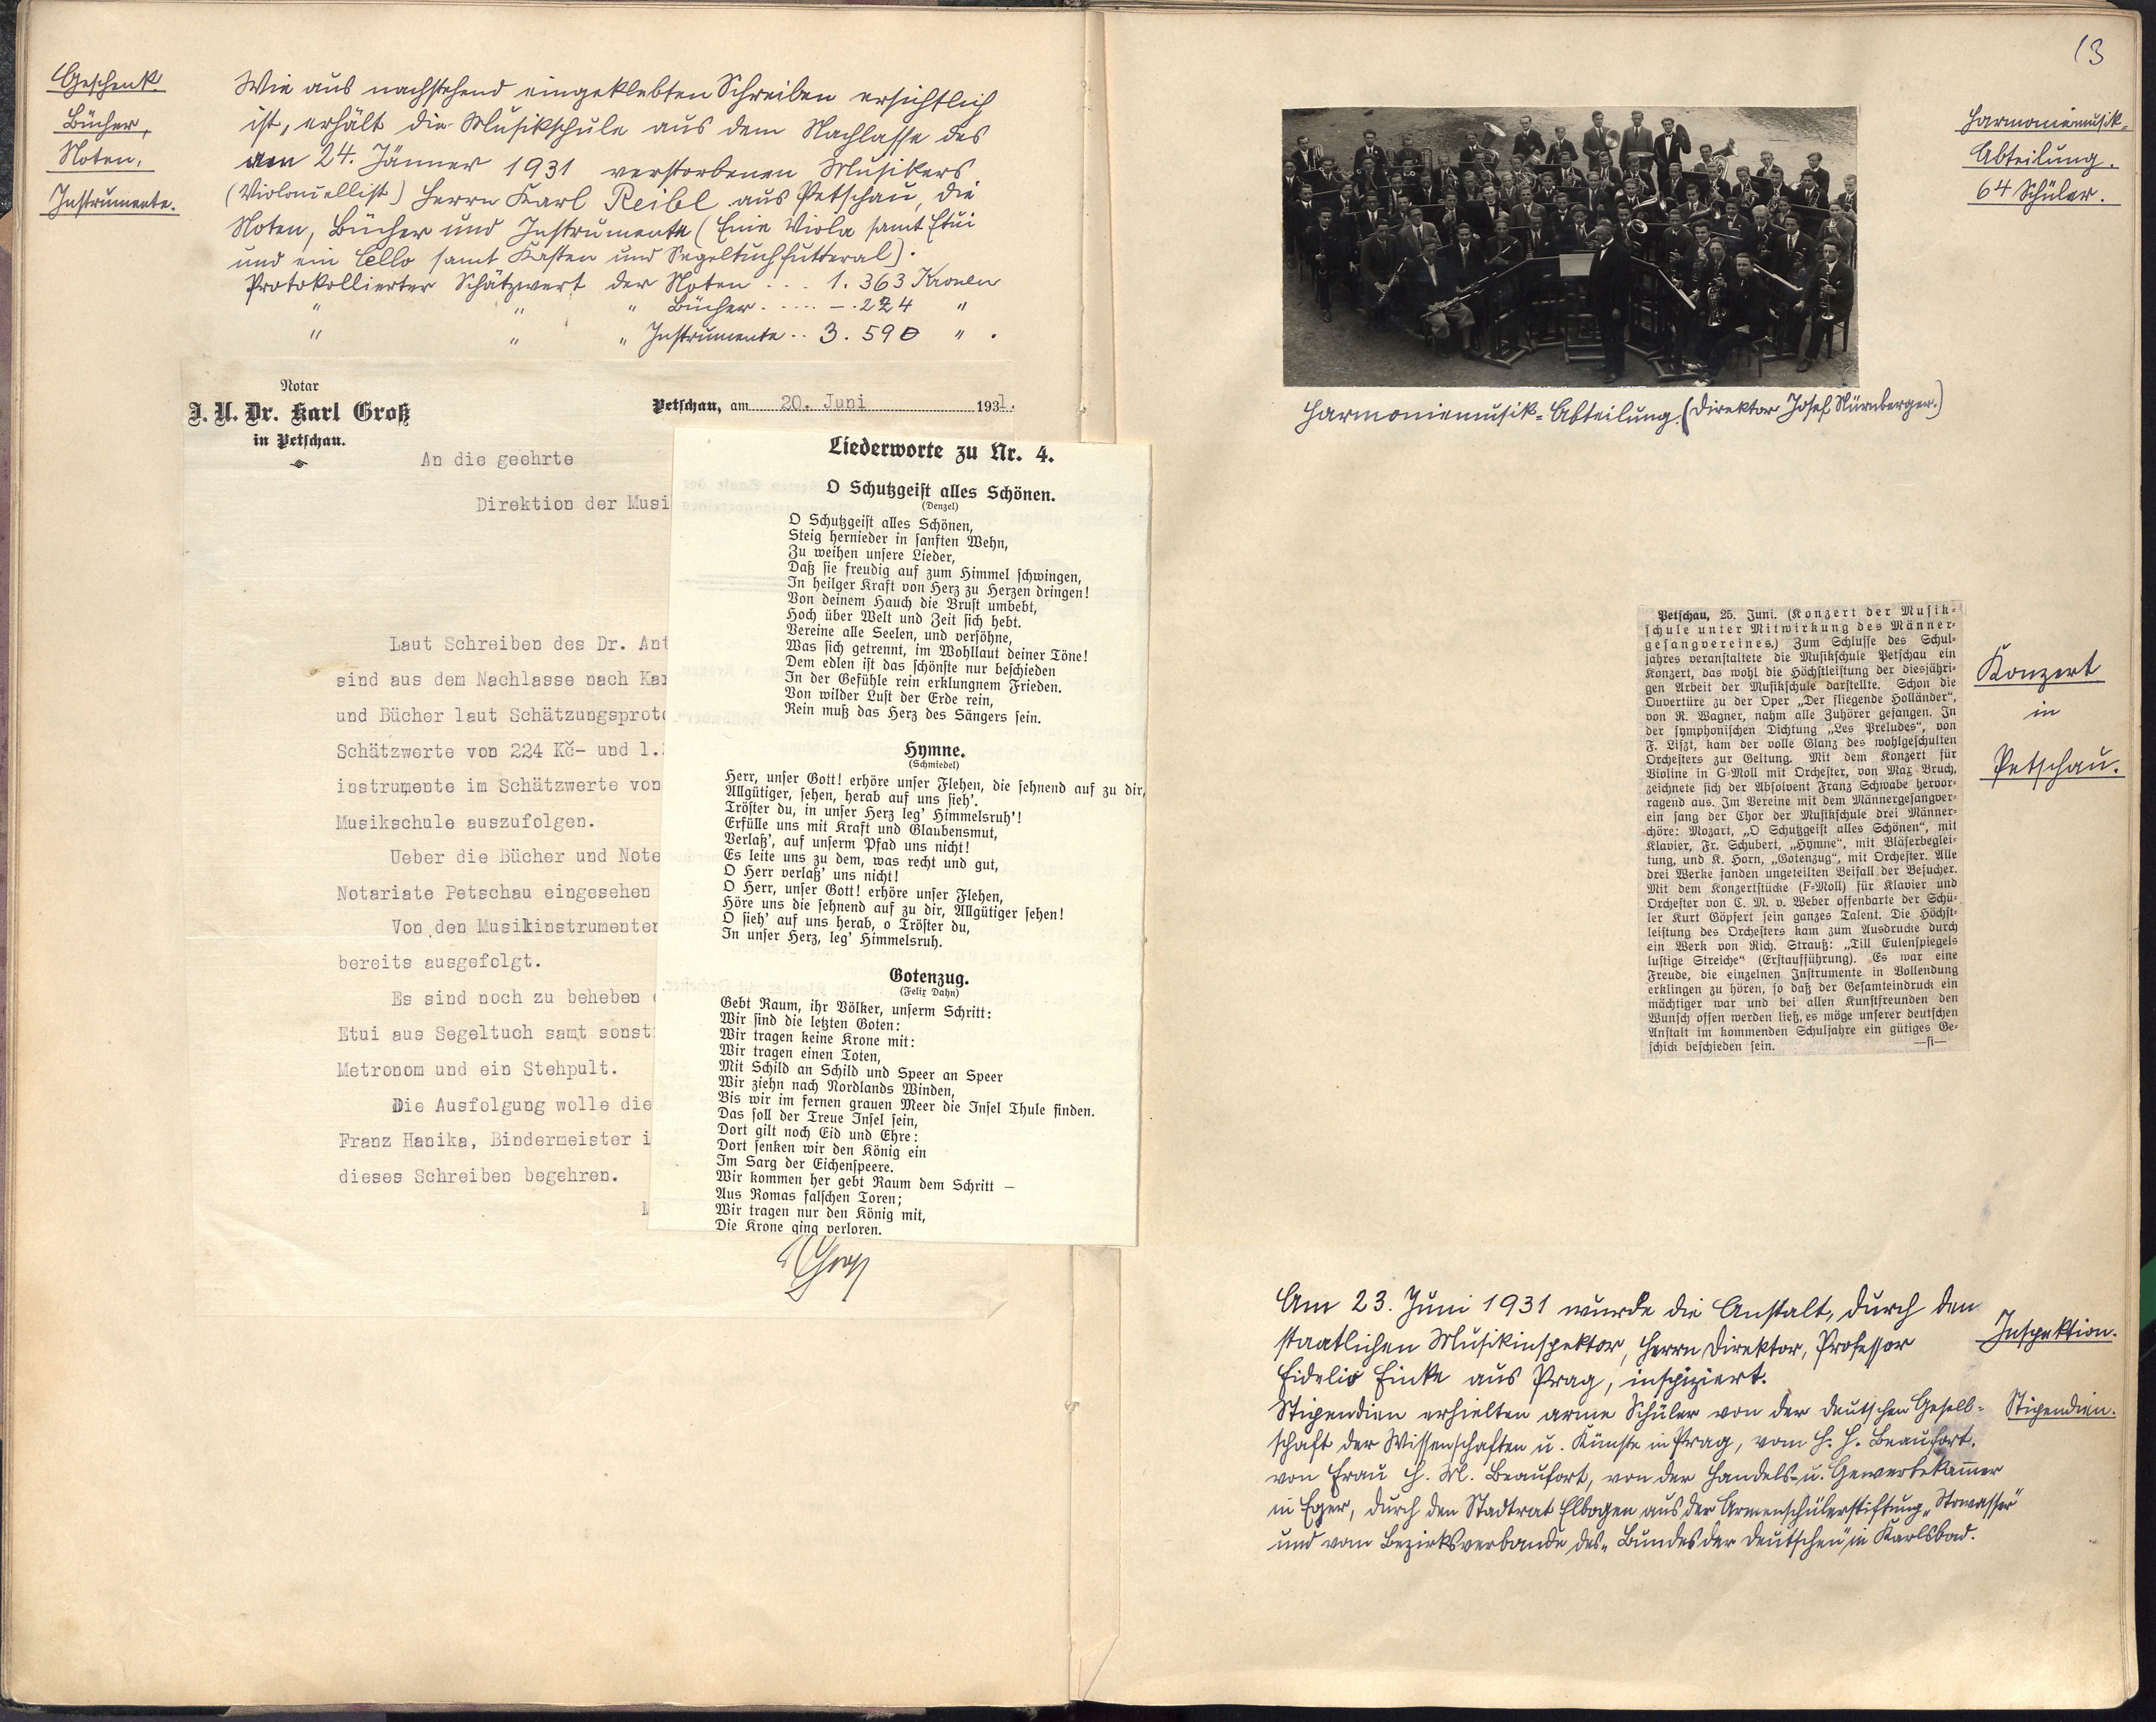 Geschenk.
Bücher,
Noten,
Instrumente.
Wie aus nachstehend eingeklebten Schreiben ersichtlich
ist, erhält die Musikschule aus dem Nachlasse des
am 24. Jänner 1931 verstorbenen Musikers
(Violoncellist) Herrn Karl Reibl aus Petschau, die
Noten, Bücher und Instrumente (Eine Viola samt Etui
und ein Cello samt Kasten und Segeltuchfutteral).
Protokollierter Schätzwert der Noten . . . 1.363 Kronen
" " " Bücher. ..... – .224 "
" " " Instrumente .. 3.590 " .
Notar
J. U. Dr. Karl Groß
in Petschau.
Petschau, am 20. Juni 1931.
An die geehrte
Direktion der Musi
Laut Schreiben des Dr. Ant
sind aus dem Nachlasse nach Kar
und Bücher laut Schätzungsproto
Schätzwerte von 224 Kč- und 1.
instrumente im Schätzwerte von
Musikschule auszufolgen.
Ueber die Bücher und Note
Notariate Petschau eingesehen
Von den Musikinstrumenten
bereits ausgefolgt.
Es sind noch zu beheben
Etui aus Segeltuch samt sonst
Metronom und ein Stehpult.
Die Ausfolgung wolle die
Franz Hanika, Bindermeister i
dieses Schreiben begehren.
Liederworte zu Nr. 4.
O Schutzgeist alles Schönen.
(Denzel)
O Schutzgeist alles Schönen,
Steig hernieder in sanften Wehn,
Zu weihen unsere Lieder,
Daß sie freudig auf zum Himmel schwingen,
In heilger Kraft von Herz zu Herzen dringen!
Von deinem Hauch die Brust umbebt,
Hoch über Welt und Zeit sich hebt.
Vereine alle Seelen, und versöhne,
Was sich getrennt, im Wohllaut deiner Töne!
Dem edlen ist das schönste nur beschieden
In der Gefühle rein erklungnem Frieden.
Von wilder Lust der Erde rein,
Rein muß das Herz des Sängers sein.
Hymne.
(Schmiedel)
Herr, unser Gott! erhöre unser Flehen, die sehnend auf zu dir,
Allgütiger, sehen, herab auf uns sieh'.
Tröster du, in unser Herz leg' Himmelsruh'!
Erfülle uns mit Kraft und Glaubensmut,
Verlaß', auf unserm Pfad uns nicht!
Es leite uns zu dem, was recht und gut,
O Herr verlaß' uns nicht!
O Herr, unser Gott! erhöre unser Flehen,
Höre uns die sehnend auf zu dir, Allgütiger sehen!
O sieh' auf uns herab, o Tröster du,
In unser Herz, leg' Himmelsruh.
Gotenzug.
(Felix Dahn)
Gebt Raum, ihr Völker, unserm Schritt:
Wir sind die letzten Goten:
Wir tragen keine Krone mit:
Wir tragen einen Toten,
Mit Schild an Schild und Speer an Speer
Wir ziehn nach Nordlands Winden,
Bis wir im fernen grauen Meer die Insel Thule finden.
Das soll der Treue Insel sein,
Dort gilt noch Eid und Ehre:
Dort senken wir den König ein
Im Sarg der Eichenspeere.
Wir kommen her gebt Raum dem Schritt —
Aus Romas falschen Toren;
Wir tragen nur den König mit,
Die Krone ging verloren.
13
Harmoniemusik-
Abteilung.
64 Schüler.
Harmoniemusik-Abteilung. (Direktor Josef Nürnberger.)
Petschau, 25. Juni. (Konzert der Musik-
schule unter Mitwirkung des Männer-
gesangvereines.) Zum Schlusse des Schul-
jahres veranstaltete die Musikschule Petschau ein
Konzert, das wohl die Höchstleistung der diesjähri-
gen Arbeit der Musikschule darstellte. Schon die
Ouvertüre zu der Oper „Der fliegende Holländer“,
von R. Wagner, nahm alle Zuhörer gefangen. In
der symphonischen Dichtung „Les Preludes“, von
F. Liszt, kam der volle Glanz des wohlgeschulten
Orchesters zur Geltung. Mit dem Konzert für
Violine in G-Moll mit Orchester, von Max Bruch,
zeichnete sich der Absolvent Franz Schwabe hervor-
ragend aus. Im Vereine mit dem Männergesangver-
ein sang der Chor der Musikschule drei Männer-
chöre: Mozart, „O Schutzgeist alles Schönen“, mit
Klavier, Fr. Schubert, „Hymne“, mit Bläserbeglei-
tung, und K. Horn, „Gotenzug“, mit Orchester. Alle
drei Werke fanden ungeteilten Beifall der Besucher.
Mit dem Konzertstücke (F-Moll) für Klavier und
Orchester von C. M. v. Weber offenbarte der Schü-
ler Kurt Göpfert sein ganzes Talent. Die Höchst-
leistung des Orchesters kam zum Ausdrucke durch
ein Werk von Rich. Strauß: „Till Eulenspiegels
lustige Streiche“ (Erstaufführung). Es war eine
Freude, die einzelnen Instrumente in Vollendung
erklingen zu hören, so daß der Gesamteindruck ein
mächtiger war und bei allen Kunstfreunden den
Wunsch offen werden ließ, es möge unserer deutschen
Anstalt im kommenden Schuljahre ein gütiges Ge-
schick beschieden sein. —si—
Konzert
in
Petschau.
Am 23. Juni 1931 wurde die Anstalt, durch den
staatlichen Musikinspektor, Herrn Direktor, Professor
Fidelio Finke aus Prag, inspiziert.
Inspektion.
Stipendien erhielten arme Schüler von der deutschen Gesell-
schaft der Wissenschaften u. Künste in Prag, vom H. H. Beaufort.
von Frau H. M. Beaufort, von der Handels- u. Gewerbekammer
in Eger, durch den Stadtrat Elbogen aus der Armenschülerstiftung „Stowasser“
und vom Bezirksverbande des „Bundes der Deutschen“ in Karlsbad.
Stipendien.